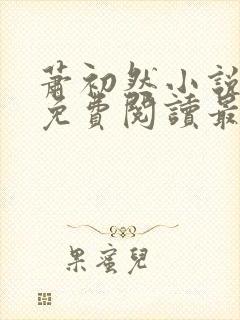 蕭初然小說
免費閱讀最
果蜜兒